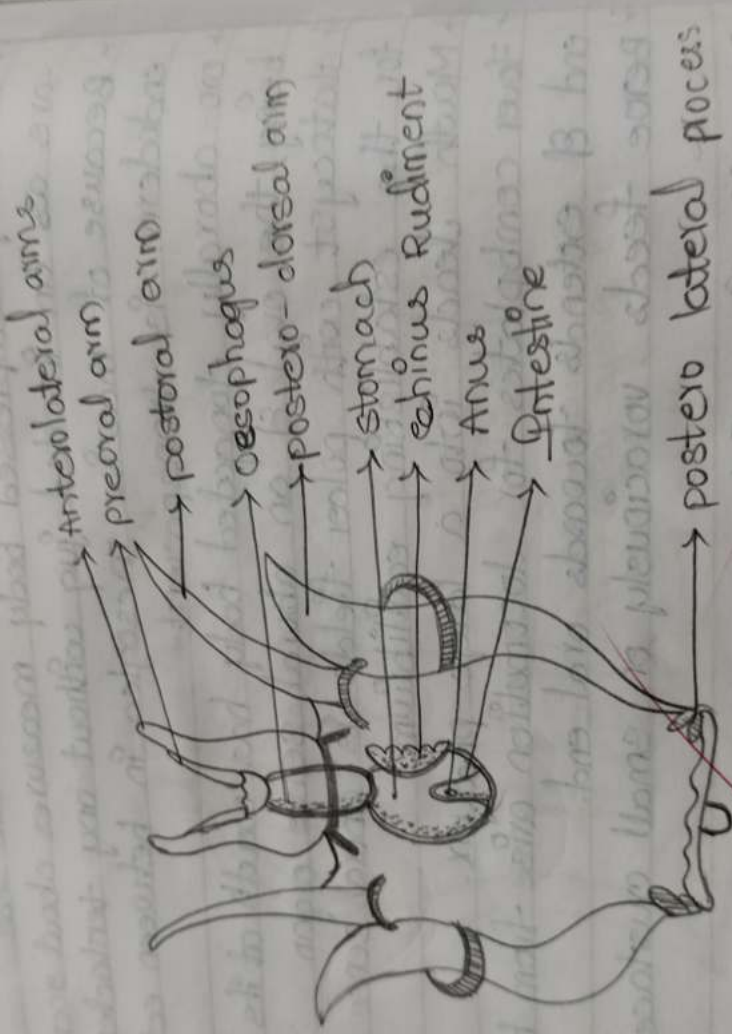 Anterolateral arms
preoral arm
postoral arm
oesophagus
postero-dorsal arm
stomach
Echinus Rudiment
Anus
Intestine
postero lateral process